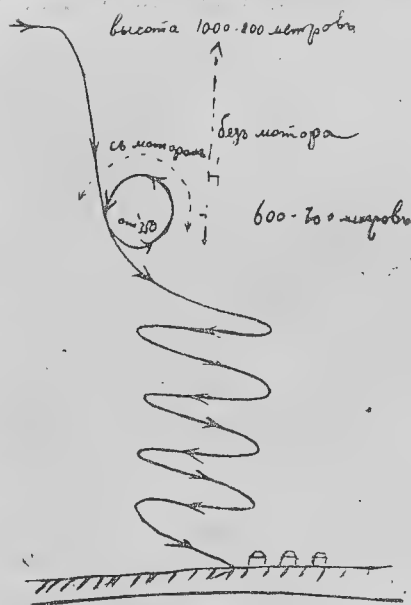 высота 1000-800 метровъ
безъ мотора
съ моторомъ
600-700 метровъ